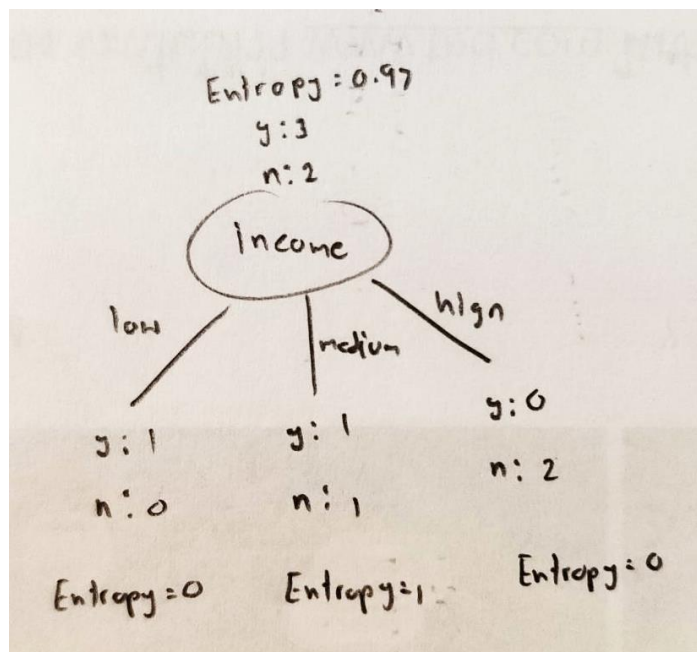 Entropy = 0.97
y : 3
n : 2
income
low
medium
high
y : 1
n : 0
Entropy = 0
y : 1
n : 1
Entropy = 1
y : 0
n : 2
Entropy = 0